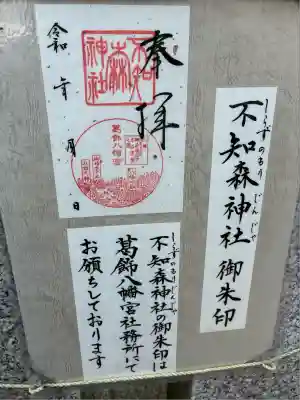 しらずのもり じんじゃ
不知森神社 御朱印
奉拝
不知森神社
葛飾八幡宮
令和 年 月 日
しらずのもりじんじゃ
不知森神社の御朱印は
葛飾八幡宮社務所にて
お頒ちしております